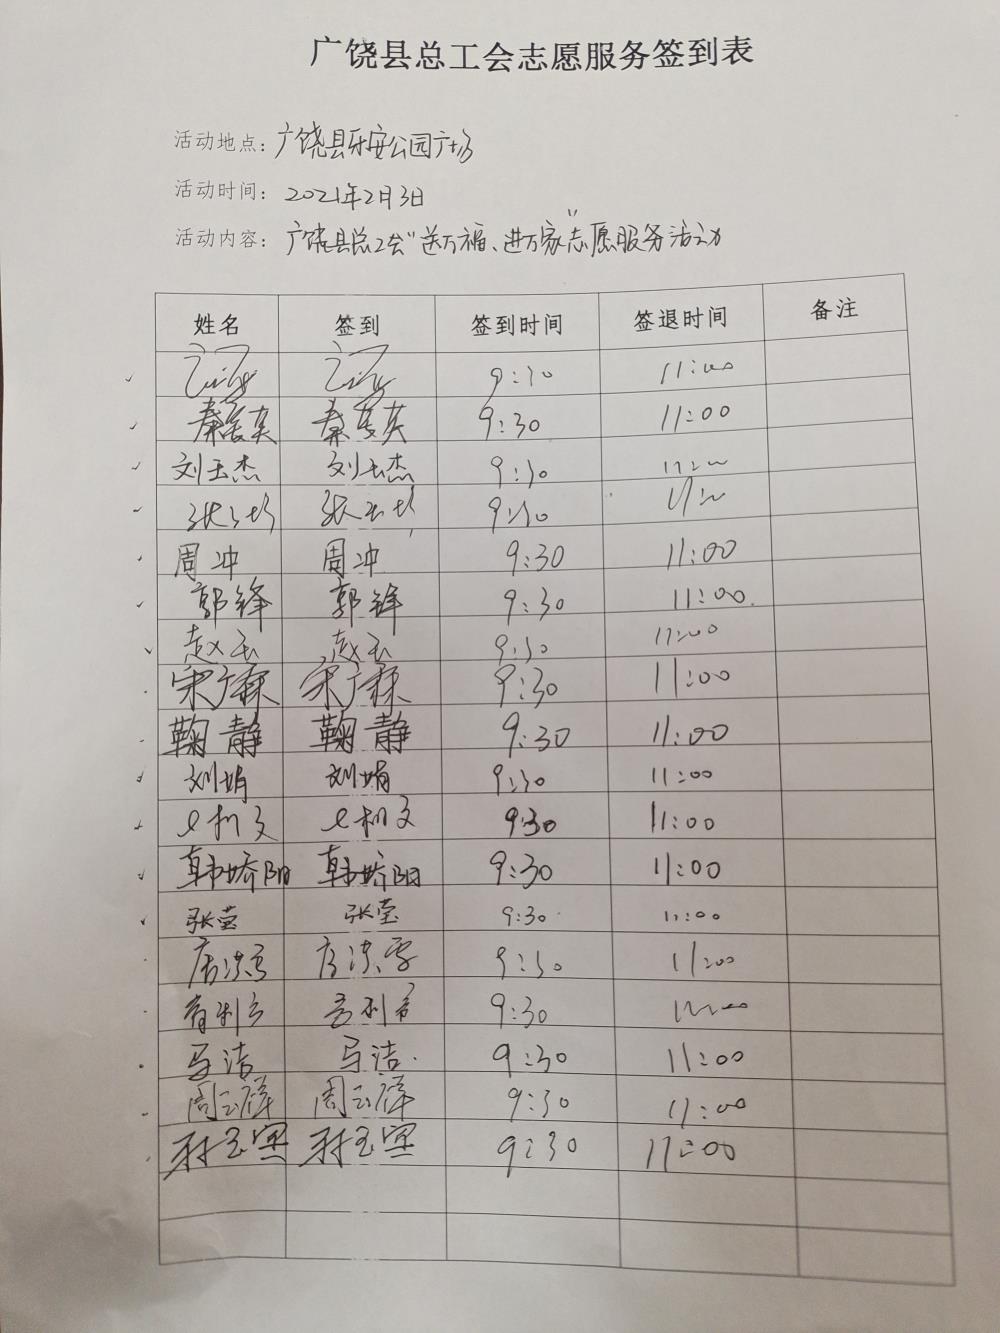 广饶县总工会志愿服务签到表
活动地点：广饶县乐安公园广场
活动时间：2021年2月3日
活动内容：广饶县总工会"送万福、进万家"志愿服务活动
姓名 签到 签到时间 签退时间 备注
9:30 11:00
秦英 秦英 9:30 11:00
刘玉杰 刘玉杰 9:30 11:00
张 张玉 9:30 11:00
周冲 周冲 9:30 11:00
郭锋 郭锋 9:30 11:00
赵玉 赵玉 9:30 11:00
宋广森 宋广森 9:30 11:00
鞠静 鞠静 9:30 11:00
刘娟 刘娟 9:30 11:00
9:30 11:00
韩娇阳 韩娇阳 9:30 11:00
张莹 张莹 9:30 11:00
9:30 11:00
9:30 11:00
马洁 马洁 9:30 11:00
周云祥 周云祥 9:30 11:00
9:30 11:00